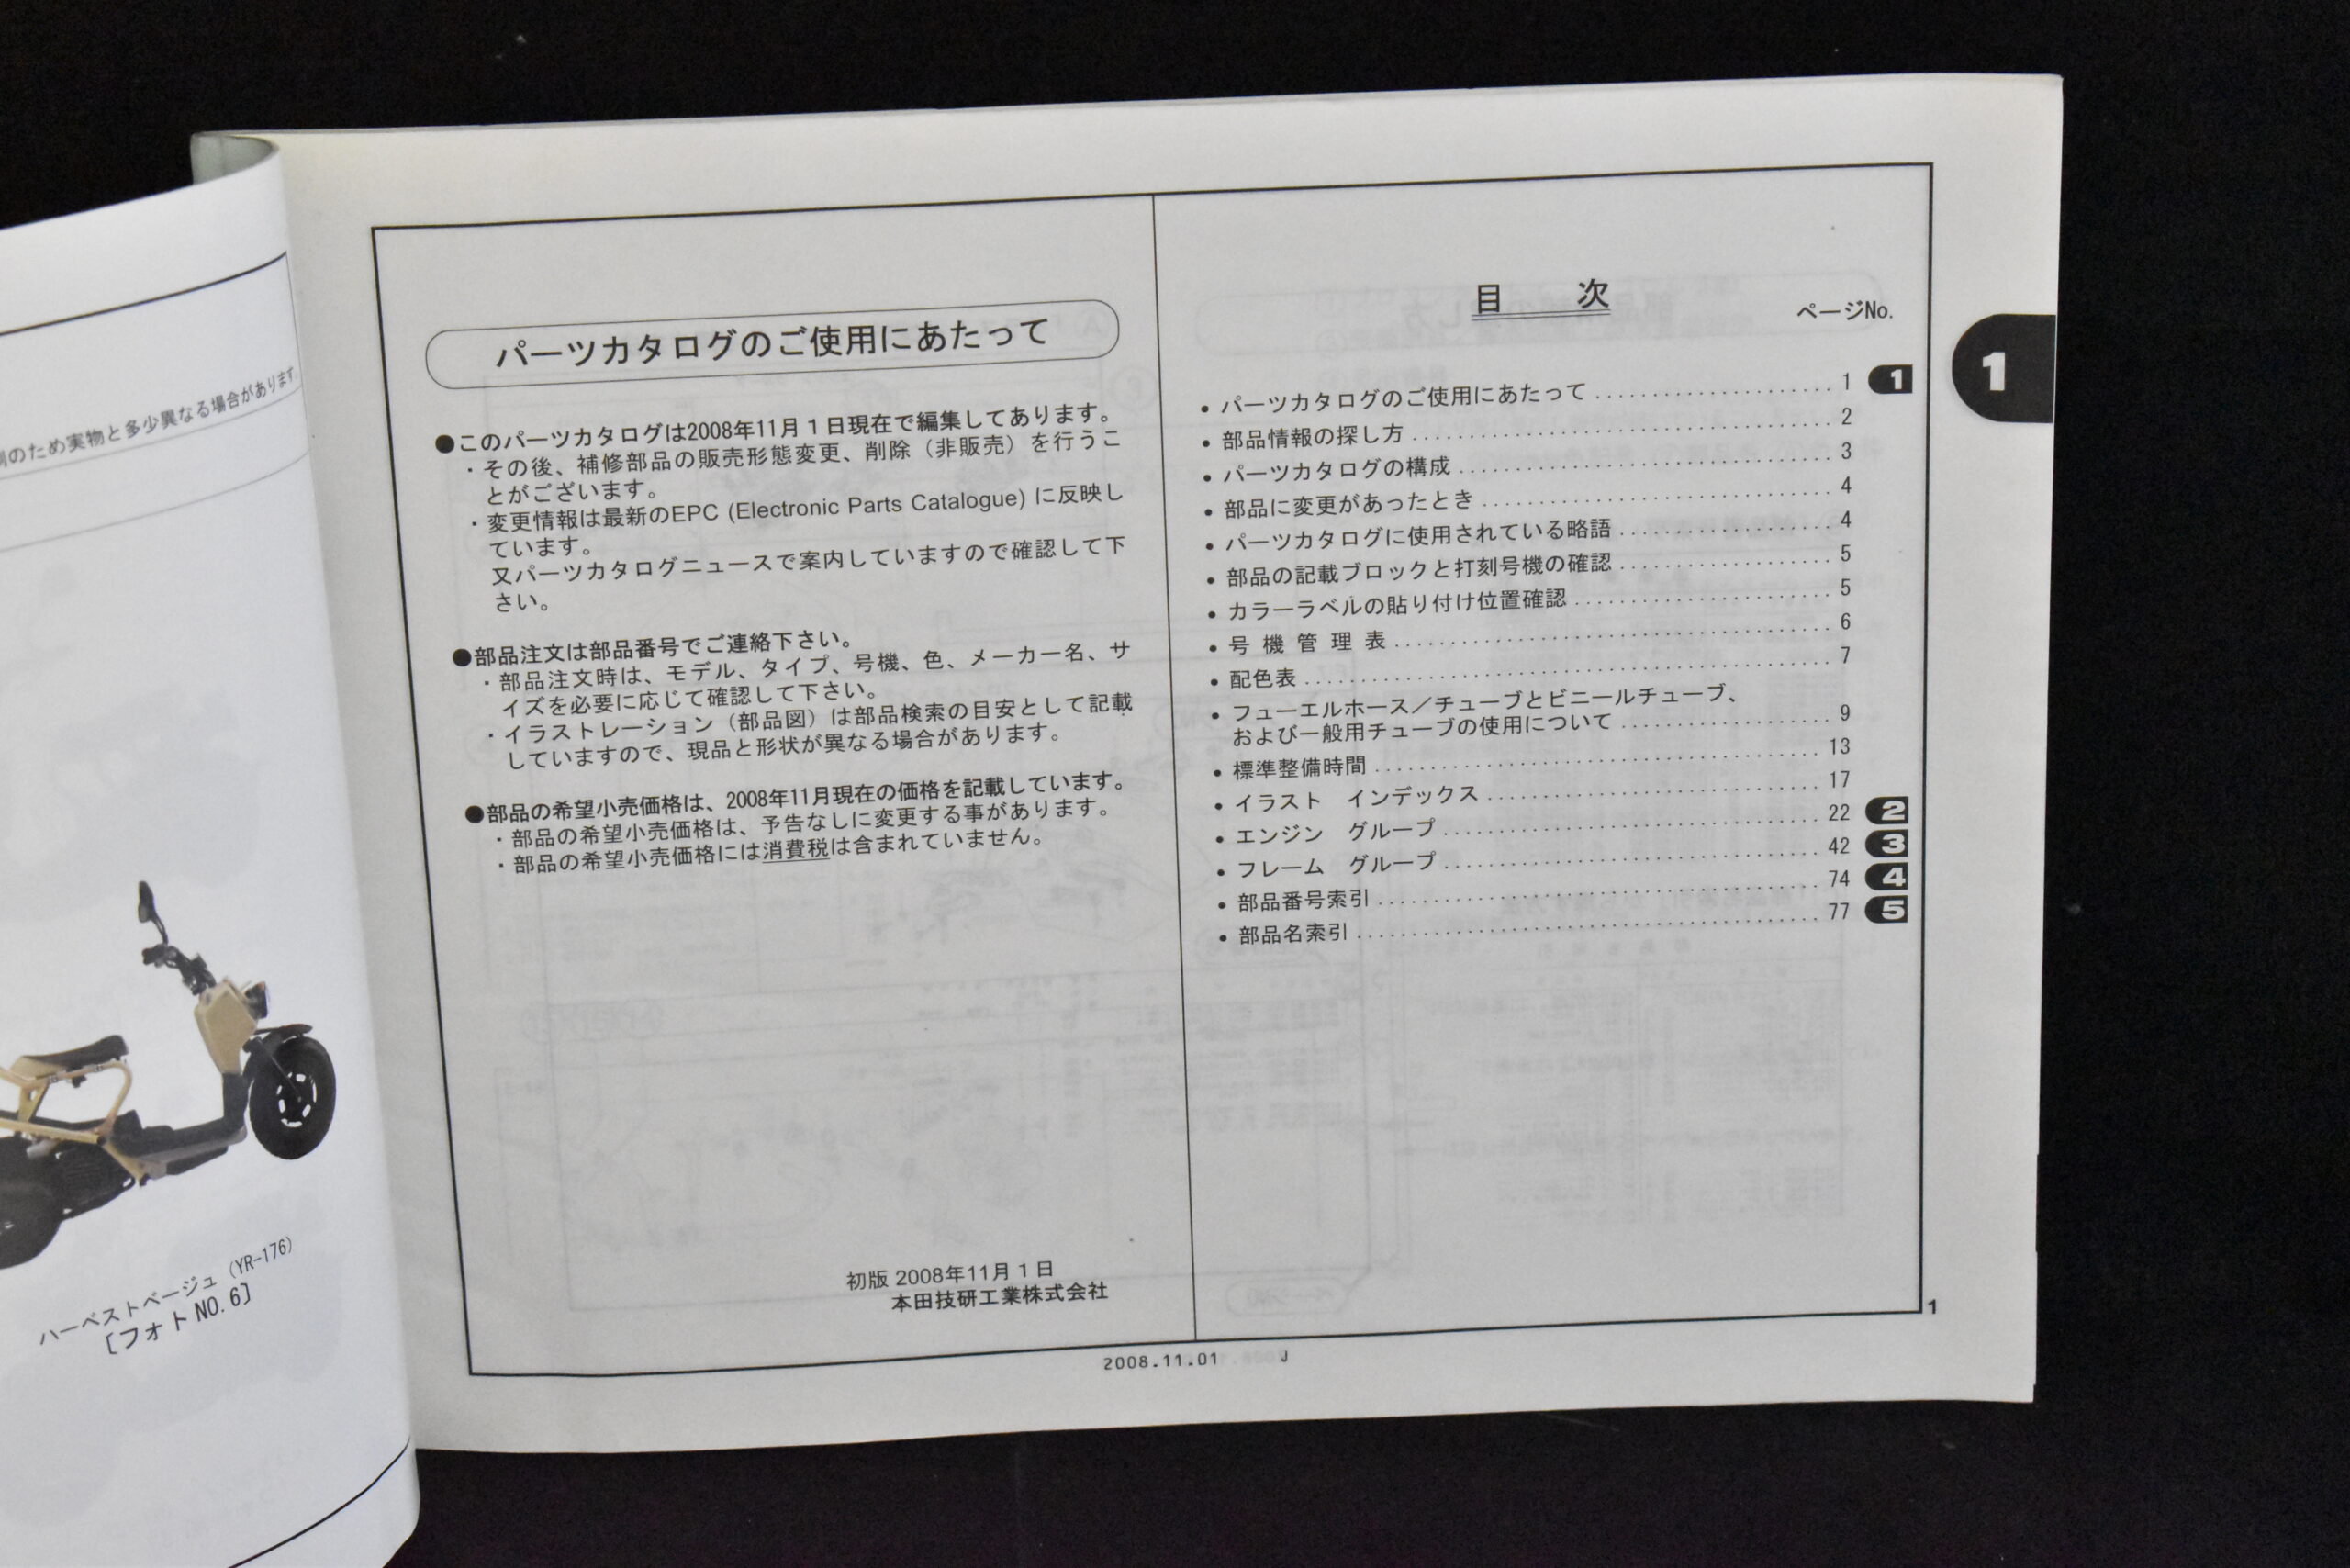 のため実物と多少異なる場合があります
ハーベストベージュ (YR-176)
[フォトNO.6]
パーツカタログのご使用にあたって
●このパーツカタログは2008年11月1日現在で編集してあります。
・その後、補修部品の販売形態変更、削除（非販売）を行うこ
とがございます。
・変更情報は最新のEPC (Electronic Parts Catalogue) に反映し
ています。
又パーツカタログニュースで案内していますので確認して下
さい。
●部品注文は部品番号でご連絡下さい。
・部品注文時は、モデル、タイプ、号機、色、メーカー名、サ
イズを必要に応じて確認して下さい。
・イラストレーション（部品図）は部品検索の目安として記載
していますので、現品と形状が異なる場合があります。
●部品の希望小売価格は、2008年11月現在の価格を記載しています。
・部品の希望小売価格は、予告なしに変更する事があります。
・部品の希望小売価格には消費税は含まれていません。
初版 2008年11月1日
本田技研工業株式会社
目　次
ページNo.
• パーツカタログのご使用にあたって ..................... 1 1
• 部品情報の探し方 ..................... 2
• パーツカタログの構成 ..................... 3
• 部品に変更があったとき ..................... 4
• パーツカタログに使用されている略語 ..................... 4
• 部品の記載ブロックと打刻号機の確認 ..................... 5
• カラーラベルの貼り付け位置確認 ..................... 5
• 号 機 管 理 表 ..................... 6
• 配色表 ..................... 7
• フューエルホース／チューブとビニールチューブ、
および一般用チューブの使用について ..................... 9
• 標準整備時間 ..................... 13
• イラスト　インデックス ..................... 17
• エンジン　グループ ..................... 22 2
• フレーム　グループ ..................... 42 3
• 部品番号索引 ..................... 74 4
• 部品名索引 ..................... 77 5
1
1
2008.11.01 J